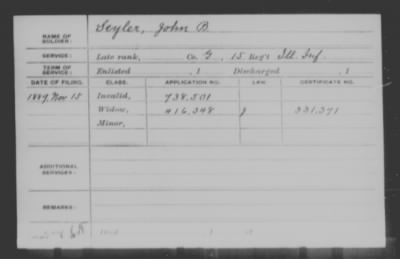 NAME OF SOLDIER: Seyler, John B
SERVICE: Late rank, Co. G, 15 Reg't Ill. Inf.
TERM OF SERVICE: Enlisted , 1 Discharged , 1
DATE OF FILING. CLASS. APPLICATION NO. LAW. CERTIFICATE NO.
1889, Nov 15 Invalid, 738.501
Widow, 416.348 331.371
Minor,
ADDITIONAL SERVICES:
REMARKS: